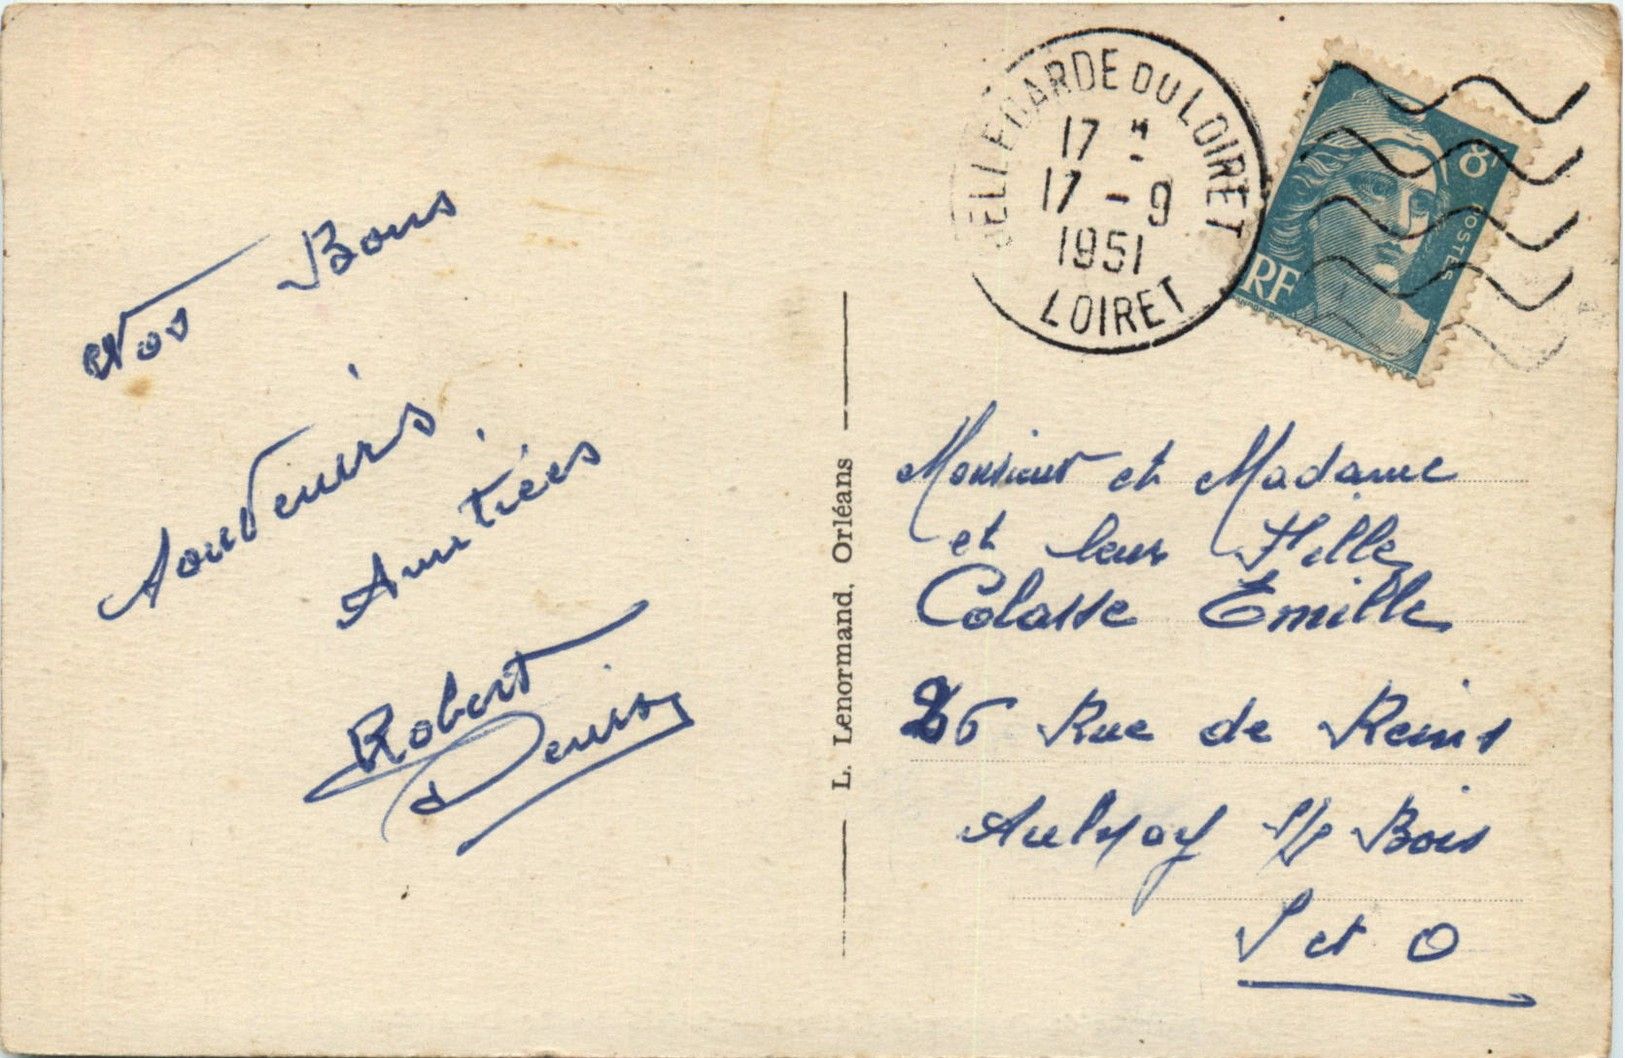 Nos Bons
Souvenirs
Amitiés
Robert
Denis
L. Lenormand, Orléans
BELLEGARDE DU LOIRET
17 H
17 - 9
1951
LOIRET
8F
POSTES
RF
Monsieur et Madame
et leur Fille
Colasse Emille
26 Rue de Reims
Aulnay s/s Bois
S et O